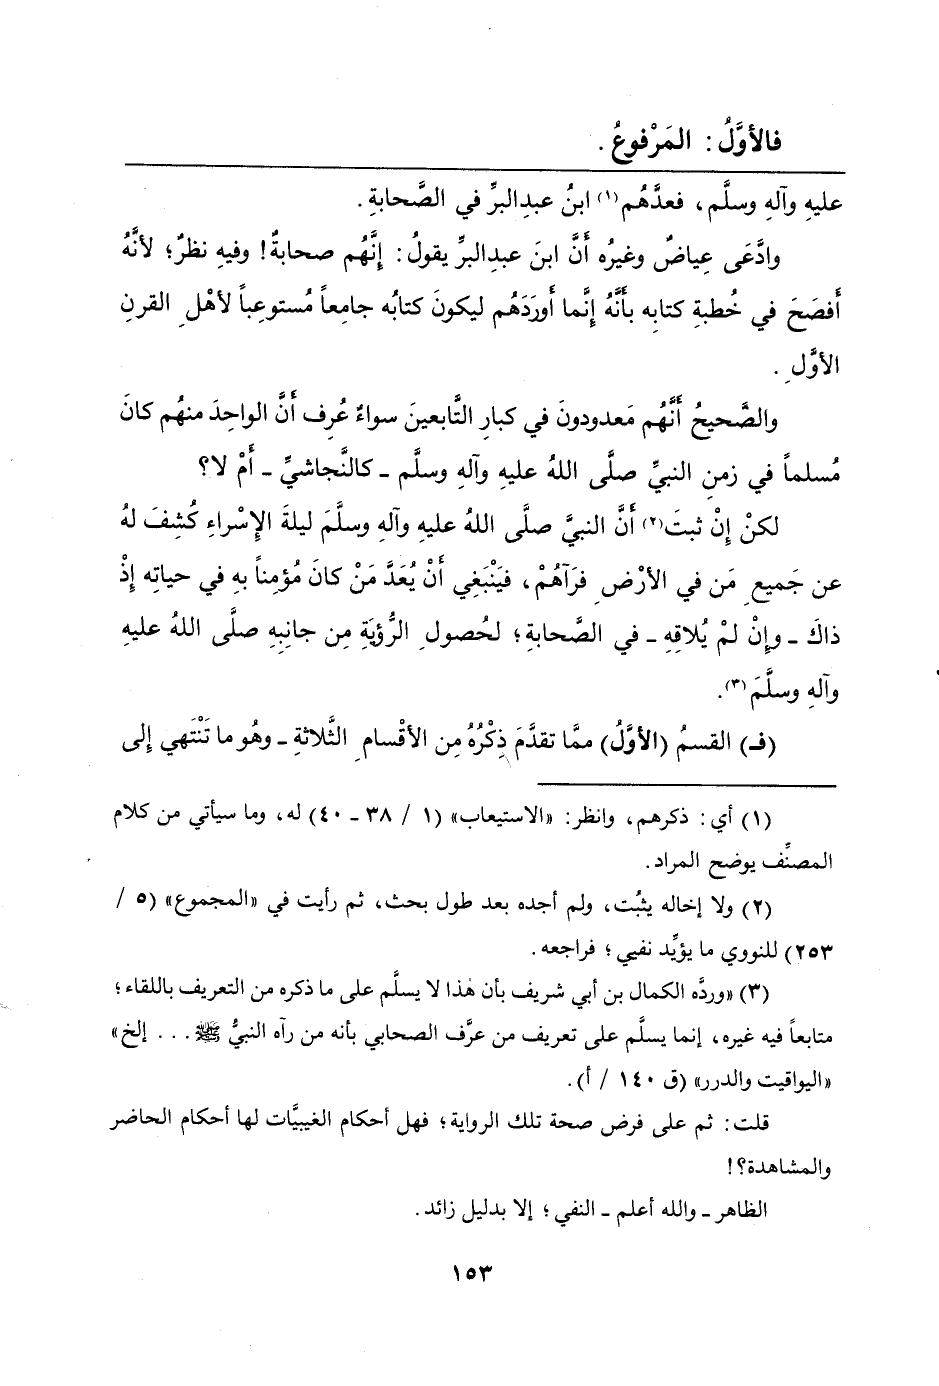 فالأوَّلُ : المَرْفوعُ .
عليهِ وآلهِ وسلَّم، فعدَّهُم(١) ابنُ عبدِالبرِّ في الصَّحابةِ .
وادَّعَى عِياضٌ وغيرُه أَنَّ ابنَ عبدِالبرِّ يقولُ : إِنَّهُم صحابةٌ! وفيهِ نظرٌ؛ لأنَّهُ
أَفصَحَ في خُطبةِ كتابِه بأَنَّهُ إِنَّما أَورَدَهُم ليكونَ كتابُه جامعاً مُستوعِباً لأهْلِ القرنِ
الأوَّلِ .
والصَّحيحُ أَنَّهُم مَعدودونَ في كبارِ التَّابعينَ سواءٌ عُرِف أَنَّ الواحِدَ منهُم كانَ
مُسلماً في زمنِ النبيِّ صلَّى اللهُ عليهِ وآلهِ وسلَّم ـ كالنَّجاشيِّ ـ أَمْ لا؟
لكنْ إِنْ ثبتَ(٢) أَنَّ النبيَّ صلَّى اللهُ عليهِ وآلهِ وسلَّمَ ليلةَ الإِسْراءِ كُشِفَ لهُ
عن جَميعِ مَن في الأرْضِ فرَآهُمْ، فيَنْبَغِي أَنْ يُعَدَّ مَنْ كانَ مُؤمِناً بهِ في حياتِه إِذْ
ذاكَ ـ وإِنْ لمْ يُلاقِهِ ـ في الصَّحابةِ؛ لحُصولِ الرُّؤيَةِ مِن جانِبِهِ صلَّى اللهُ عليهِ
وآلهِ وسلَّمَ(٣).
(فـ) القسمُ (الأوَّلُ) ممَّا تقدَّمَ ذِكْرُهُ مِن الأقْسامِ الثَّلاثةِ ـ وهُو ما تَنْتَهي إِلى
(١) أي: ذكرهم، وانظر: «الاستيعاب» (١ / ٣٨ ـ ٤٠) له، وما سيأتي من كلام
المصنِّف يوضح المراد.
(٢) ولا إخاله يثبُت، ولم أجده بعد طول بحث، ثم رأيت في «المجموع» (٥ /
٢٥٣) للنووي ما يؤيِّد نفيي؛ فراجعه.
(٣) «وردَّه الكمال بن أبي شريف بأن هٰذا لا يسلَّم على ما ذكره من التعريف باللقاء؛
متابعاً فيه غيره، إنما يسلَّم على تعريف من عرَّف الصحابي بأنه من رآه النبيُّ ﷺ... إلخ»
«اليواقيت والدرر» (ق ١٤٠ / أ).
قلت: ثم على فرض صحة تلك الرواية؛ فهل أحكام الغيبيَّات لها أحكام الحاضر
والمشاهدة؟!
الظاهر ـ والله أعلم ـ النفي؛ إلا بدليل زائد.
١٥٣